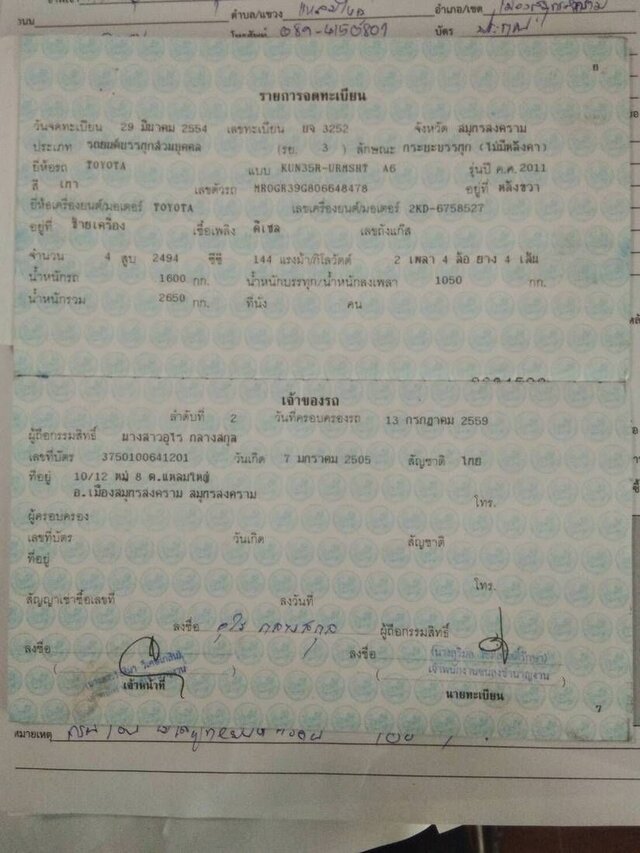 ตำบล/แขวง แหลมใหญ่ อำเภอ/เขต เมืองสมุทรสงคราม
โทรศัพท์ 089-4150801 บัตร
8
รายการจดทะเบียน
วันจดทะเบียน 29 มีนาคม 2554 เลขทะเบียน 3252 จังหวัด สมุทรสงคราม
ประเภท รถยนต์บรรทุกส่วนบุคคล (รย. 3 ) ลักษณะ กระบะบรรทุก (ไม่มีหลังคา)
ยี่ห้อรถ TOYOTA แบบ KUN35R-URMSHT A6 รุ่นปี ค.ศ. 2011
สี เทา เลขตัวรถ MR0GR39G806648478 อยู่ที่ หลังขวา
ยี่ห้อเครื่องยนต์/มอเตอร์ TOYOTA เลขเครื่องยนต์/มอเตอร์ 2KD-6758527
อยู่ที่ ซ้ายเครื่อง เชื้อเพลิง ดีเซล เลขถังแก๊ส
จำนวน 4 สูบ 2494 ซีซี 144 แรงม้า/กิโลวัตต์ 2 เพลา 4 ล้อ ยาง 4 เส้น
น้ำหนักรถ 1600 กก. น้ำหนักบรรทุก/น้ำหนักลงเพลา 1050 กก.
น้ำหนักรวม 2650 กก. ที่นั่ง คน
เจ้าของรถ
ลำดับที่ 2 วันที่ครอบครองรถ 13 กรกฎาคม 2559
ผู้ถือกรรมสิทธิ์ นางสาวอุไร กลางสกุล
เลขที่บัตร 3750100641201 วันเกิด 7 มกราคม 2505 สัญชาติ ไทย
ที่อยู่ 10/12 หมู่ 8 ต.แหลมใหญ่
อ.เมืองสมุทรสงคราม สมุทรสงคราม
โทร.
ผู้ครอบครอง
เลขที่บัตร วันเกิด สัญชาติ
ที่อยู่
โทร.
สัญญาเช่าซื้อเลขที่ ลงวันที่
ลงชื่อ อุไร กลางสกุล ผู้ถือกรรมสิทธิ์
ลงชื่อ ลงชื่อ
เจ้าพนักงานขนส่งชำนาญงาน
เจ้าหน้าที่ นายทะเบียน
7
หมายเหตุ